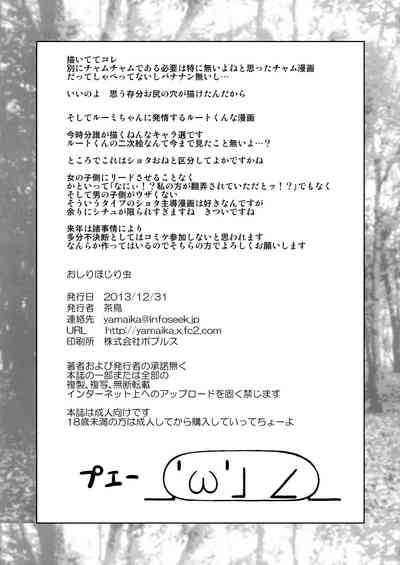 描いててコレ
別にチャムチャムである必要は特に無いよねと思ったチャム漫画
だってしゃべってないしパナナン無いし…
いいのよ　思う存分お尻の穴が描けたんだから
そしてルーミちゃんに発情するルートくんな漫画
今時分誰が描くねんなキャラ選です
ルートくんの二次絵なんて今まで見たこと無いよ…？
ところでこれはショタおねと区分してよかですかね
女の子側にリードさせることなく
かといって「なにぃ！？私の方が翻弄されていただとッ！？」でもなく
そして男の子側がウザくない
そういうタイプのショタ主導漫画は好きなんですが
余りにシチュが限られすぎますね　きついですね
来年は諸事情により
多分不決断としてはコミケ参加しないと思われます
なんらか作ってはいるのでそちらの方でよろしくお願いします
おしりほじり虫
発行日　2013/12/31
発行者　茶鳥
連絡先　yamaika@infoseek.jp
URL　http://yamaika.x.fc2.com
印刷所　株式会社ポプルス
著者および発行者の承諾無く
本誌の一部または全部の
複製、複写、無断転載
インターネット上へのアップロードを固く禁じます
本誌は成人向けです
18歳未満の方は成人してから購入していってちょーよ
プエー